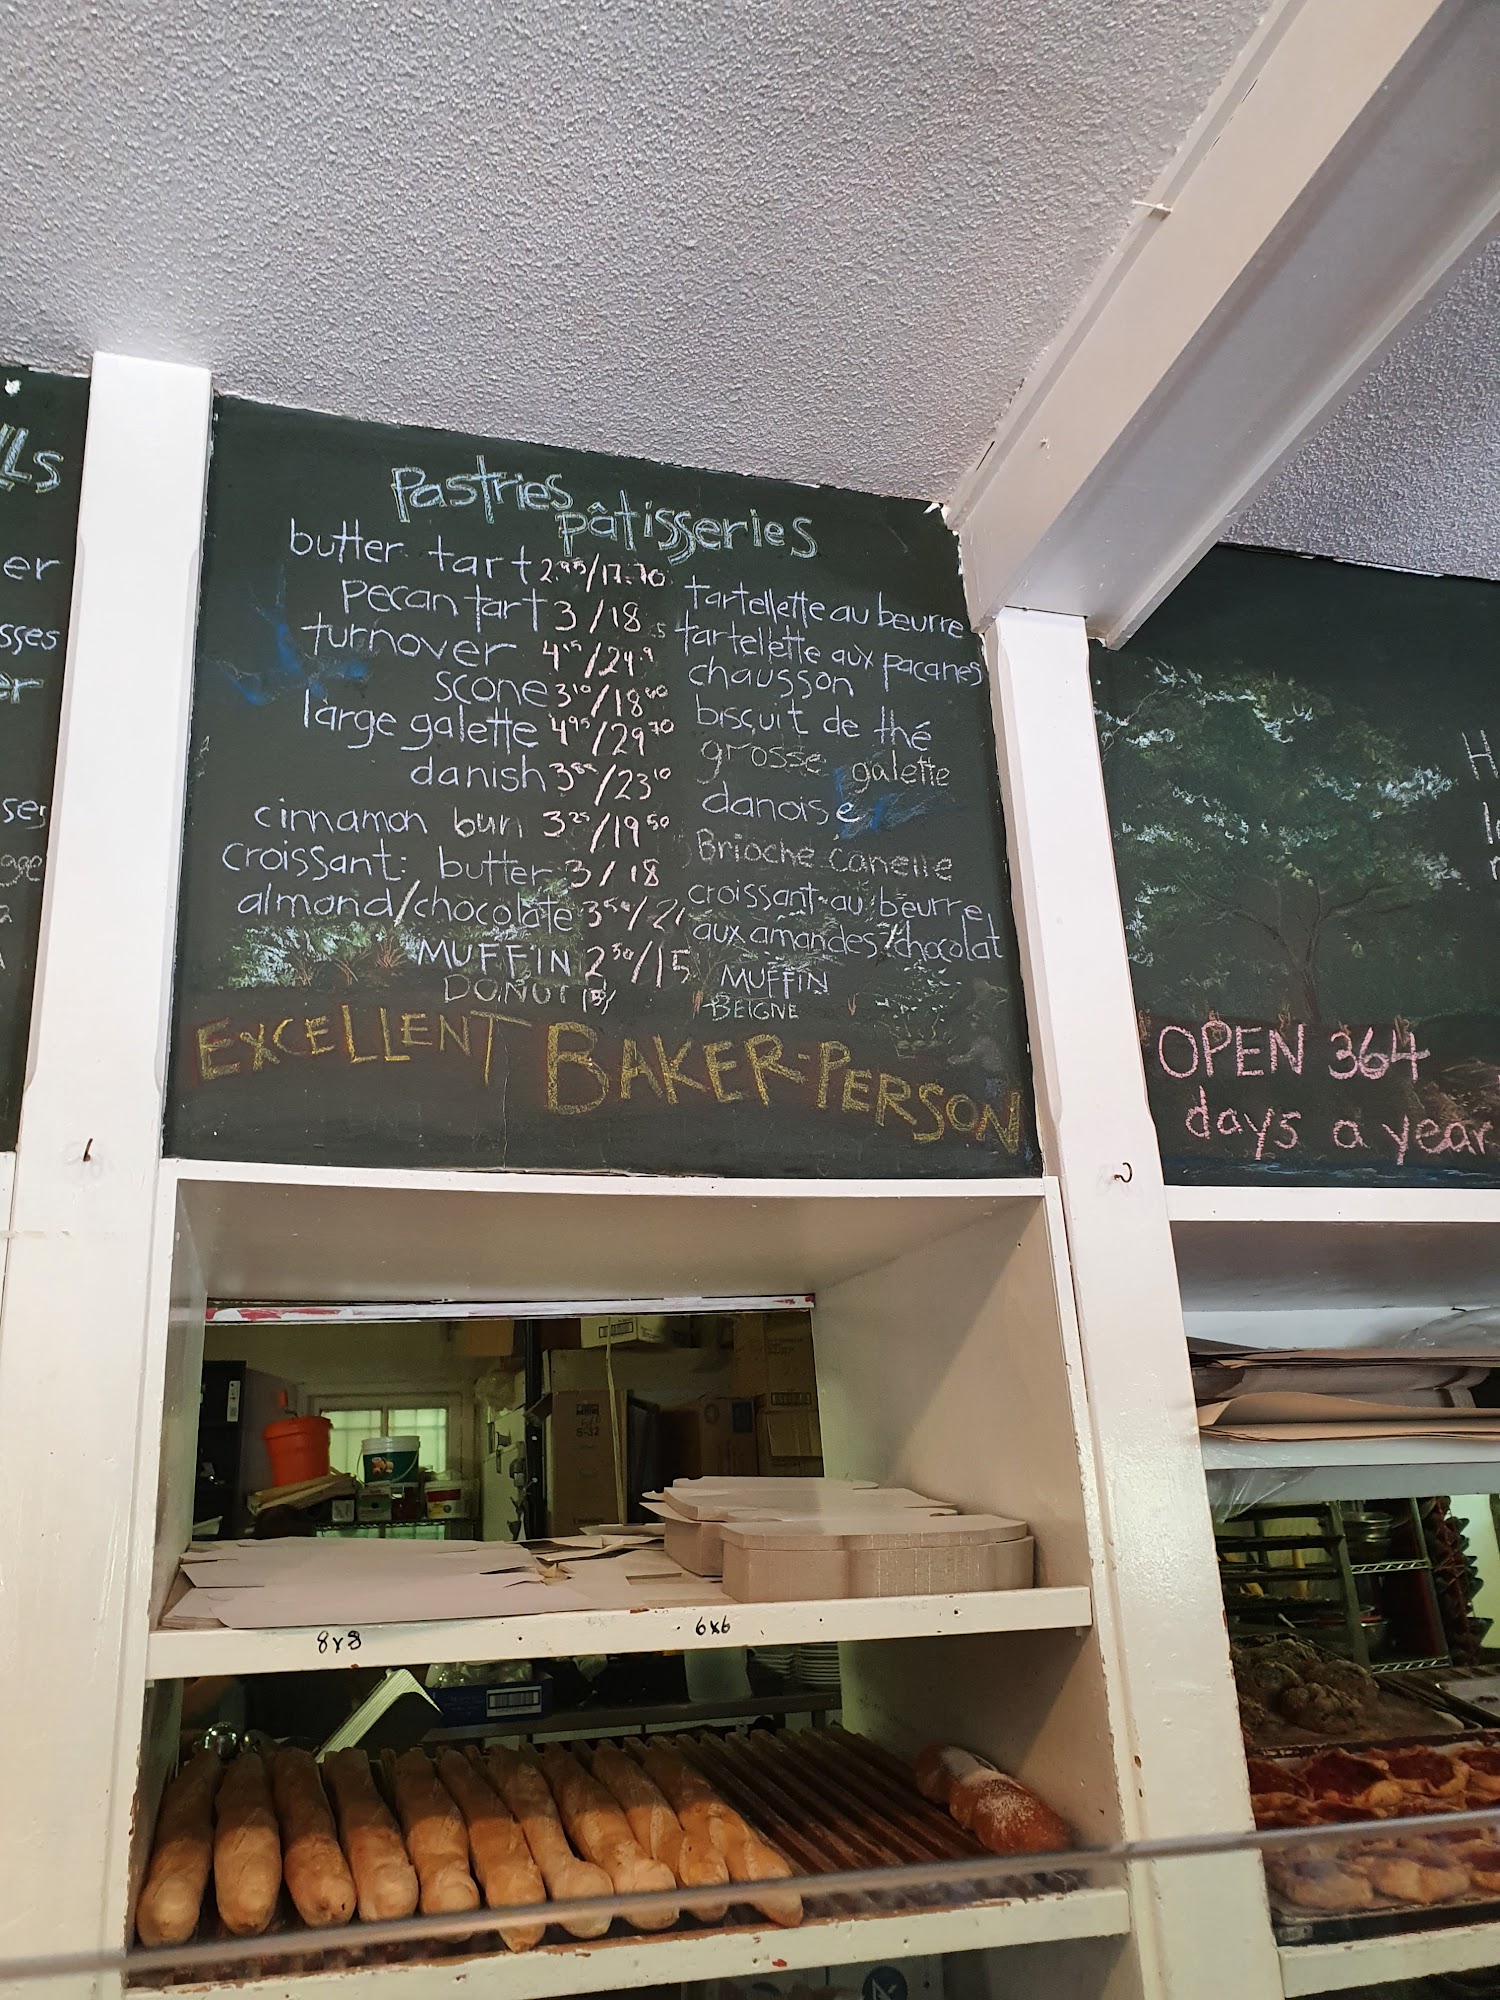 LLS
er
sses
er
ses
age
Pastries
pâtisseries
butter tart 2.95/17.70
pecan tart 3/18
turnover 4.15/24.9
scone 3.10/18.60
large galette 4.95/29.70
danish 3.85/23.10
cinnamon bun 3.25/19.50
croissant: butter 3/18
almond/chocolate 3.50/21
MUFFIN 2.50/15
DONUT
tartellette au beurre
tartellette aux pacanes
chausson
biscuit de thé
grosse galette
danoise
Brioche canelle
croissant au beurre
aux amandes/chocolat
MUFFIN
BEIGNE
EXCELLENT BAKER-PERSON
OPEN 364
days a year
8x8
6x6